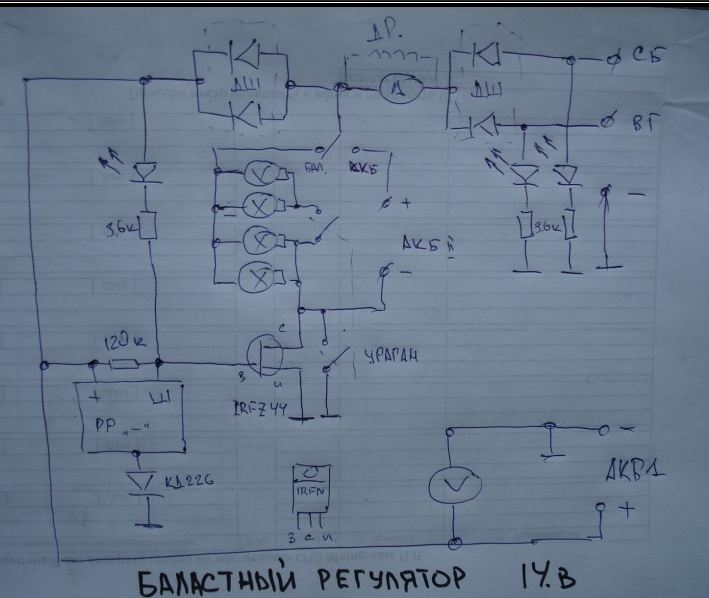 ДР.
СБ
ДШ
ДШ
А
ВГ
БАЛ.
АКБ
V
X
X
X
+
-
3,6к
3,6к
АКБ II
-
120к
С
УРАГАН
З
И
IRFZ44
+ Ш
РР „-“
КД226
-
АКБ1
V
+
IRFN
З С И.
БАЛАСТНЫЙ РЕГУЛЯТОР 14.В